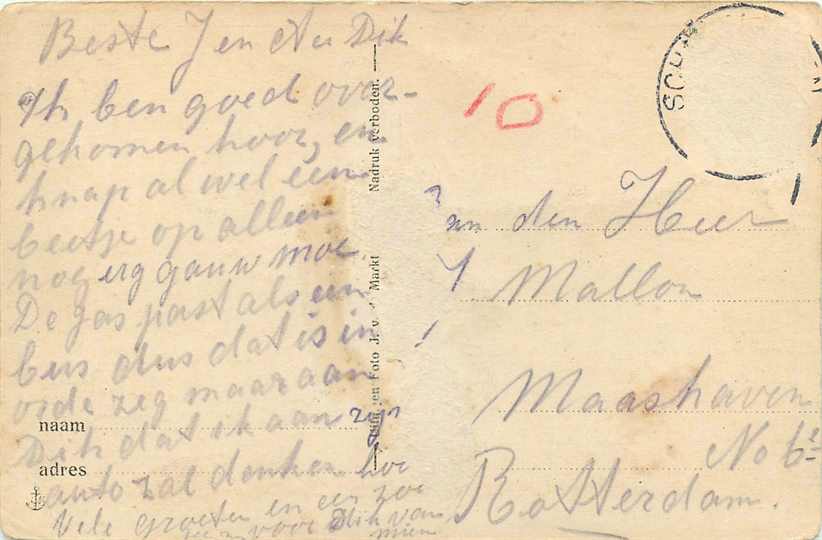 Beste J en ctu Dik
Ik ben goed over-
gekomen hoor, en
knap al wel een
beetje op alleen
nog erg gauw moe.
De jas past als een
bus dus dat is in
orde zeg maar aan
Dik dat ik aan zyn
auto zal denken hoe
Vele groeten en een zoe
voor Dik van
mien
naam
adres
Foto J. v. Markt Nadruk verboden.
10
den Heer
Mallon
Maashaven
No 6
Rotterdam.